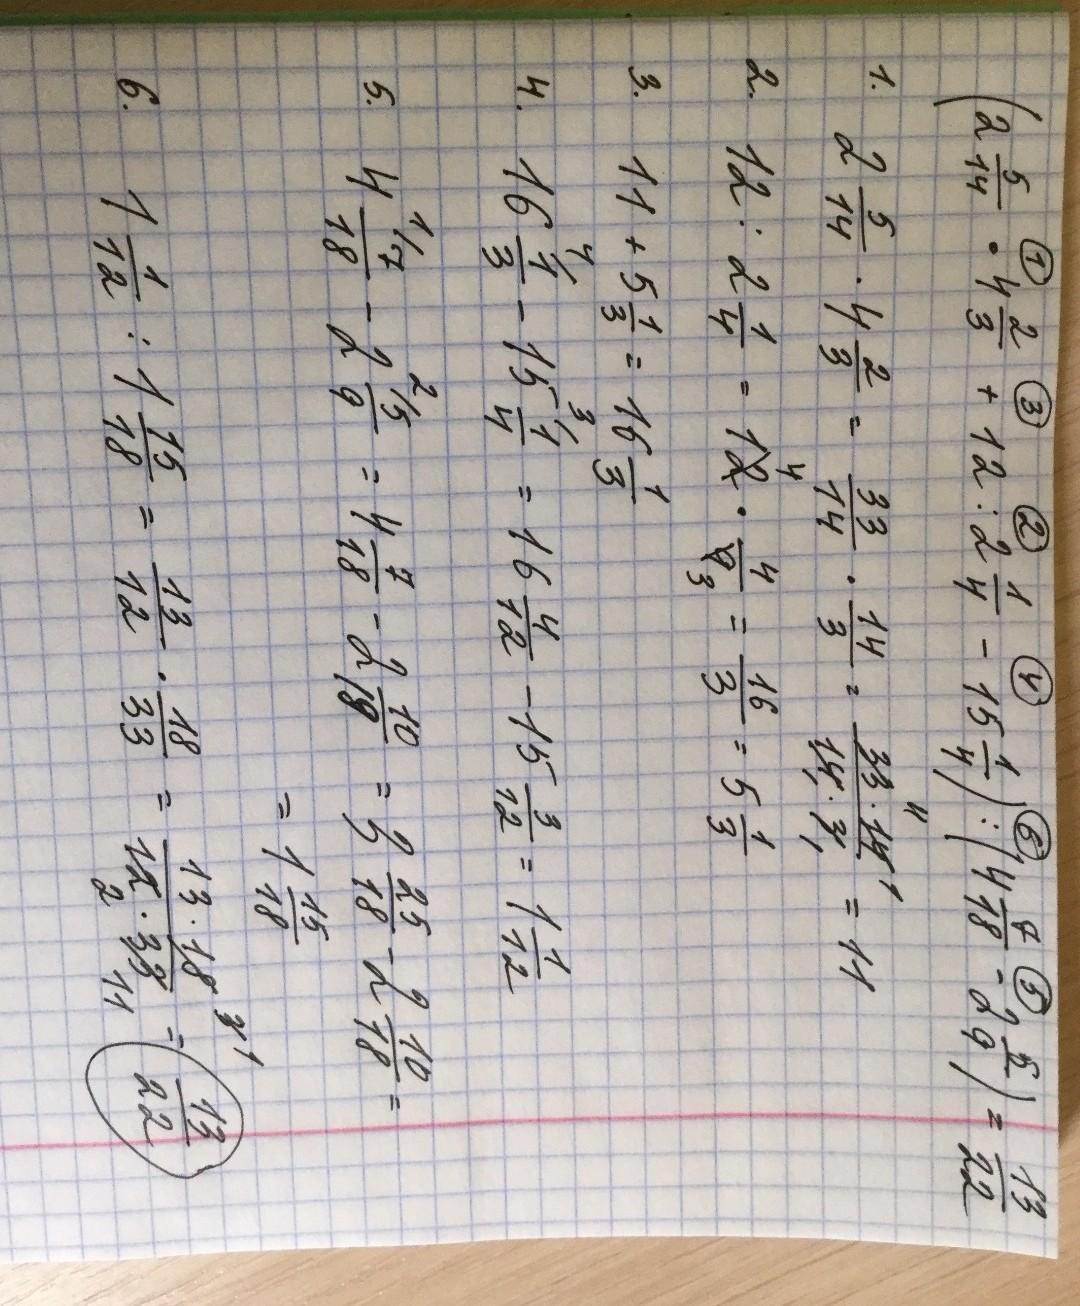 (2 5/14 · 4 2/3 + 12 : 2 1/4 - 15 1/4) : (4 7/18 - 2 5/9) = 13/22
① ③ ② ④ ⑥ ⑤
1. 2 5/14 · 4 2/3 = 33/14 · 14/3 = 33 · 14/14 · 3 = 11
11 1 1 1
2. 12 : 2 1/4 = 12 · 4/9 = 16/3 = 5 1/3
4 3
3. 11 + 5 1/3 = 16 1/3
4. 16 4/1/3 - 15 3/1/4 = 16 4/12 - 15 3/12 = 1 1/12
5. 4 1/7/18 - 2 2/5/9 = 4 7/18 - 2 10/18 = 3 25/18 - 2 10/18 =
= 1 15/18
6. 1 1/12 : 1 15/18 = 13/12 · 18/33 = 13 · 18/12 · 33 = 13/22
3 1 2 11